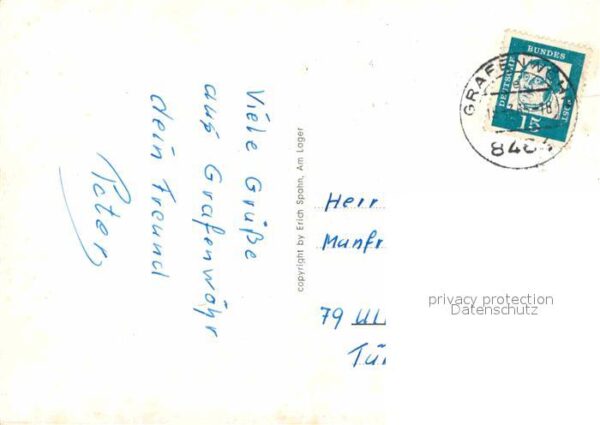 Viele Grüße
aus Grafenwöhr
dein Freund
Peter
copyright by Erich Spahn, Am Lager
DEUTSCHE BUNDESPOST
15
GRAFENWÖHR
Herr
Manfr
79 Ul
Tü
privacy protection
Datenschutz